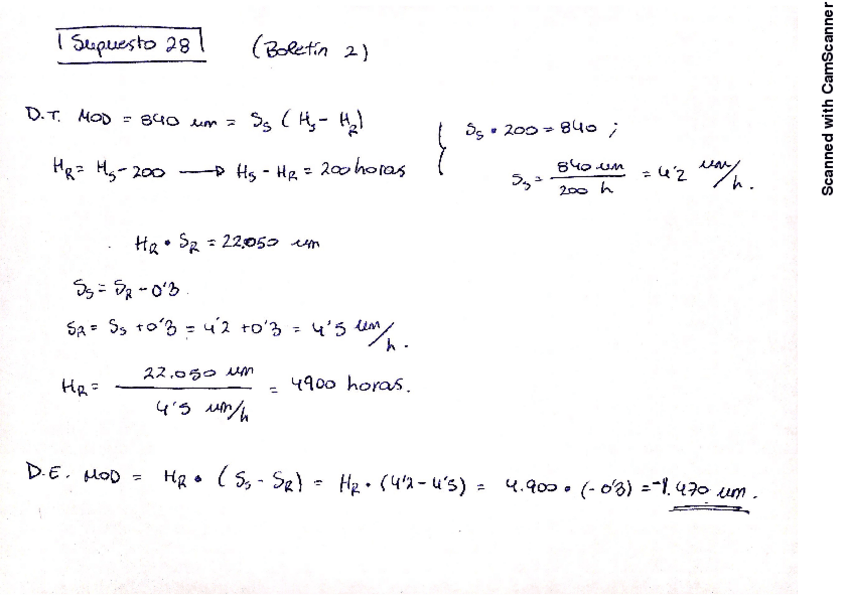 Supuesto 28 (Boletín 2)
D.T. MOD = 840 um = Ss ( Hs - HR)
HR = Hs - 200 → Hs - HR = 200 horas
Ss • 200 = 840 ;
Ss = 840 um / 200 h = 4'2 um/h.
HR • SR = 22.050 um
Ss = SR - 0'3.
SR = Ss + 0'3 = 4'2 + 0'3 = 4'5 um/h.
HR = 22.050 um / 4'5 um/h = 4900 horas.
D.E. MOD = HR • (Ss - SR) = HR • (4'2 - 4'5) = 4.900 • (-0'3) = -1.470 um.
Scanned with CamScanner